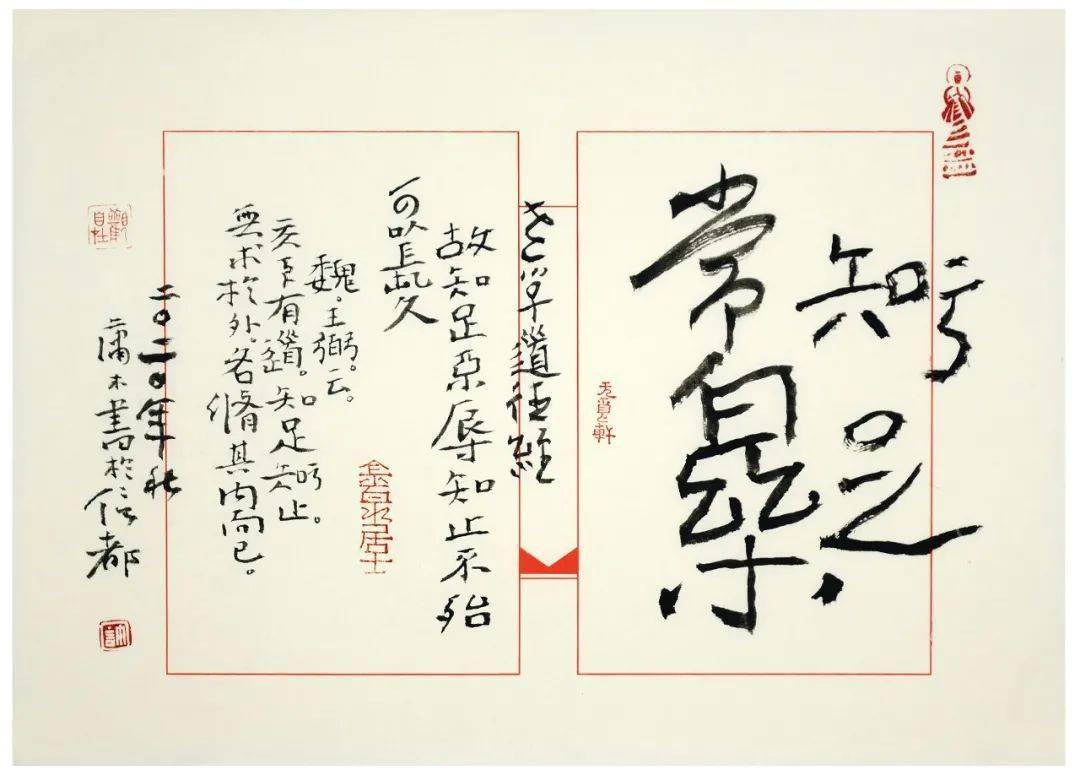 知足
常樂
无覓軒
老子道德經
故知足不辱知止不殆
可以長久
魏。王弼。云。
天下有道。知足知止。
無求於外。各脩其內而已。
二〇二〇年秋
蒲木書於信都
觀自在